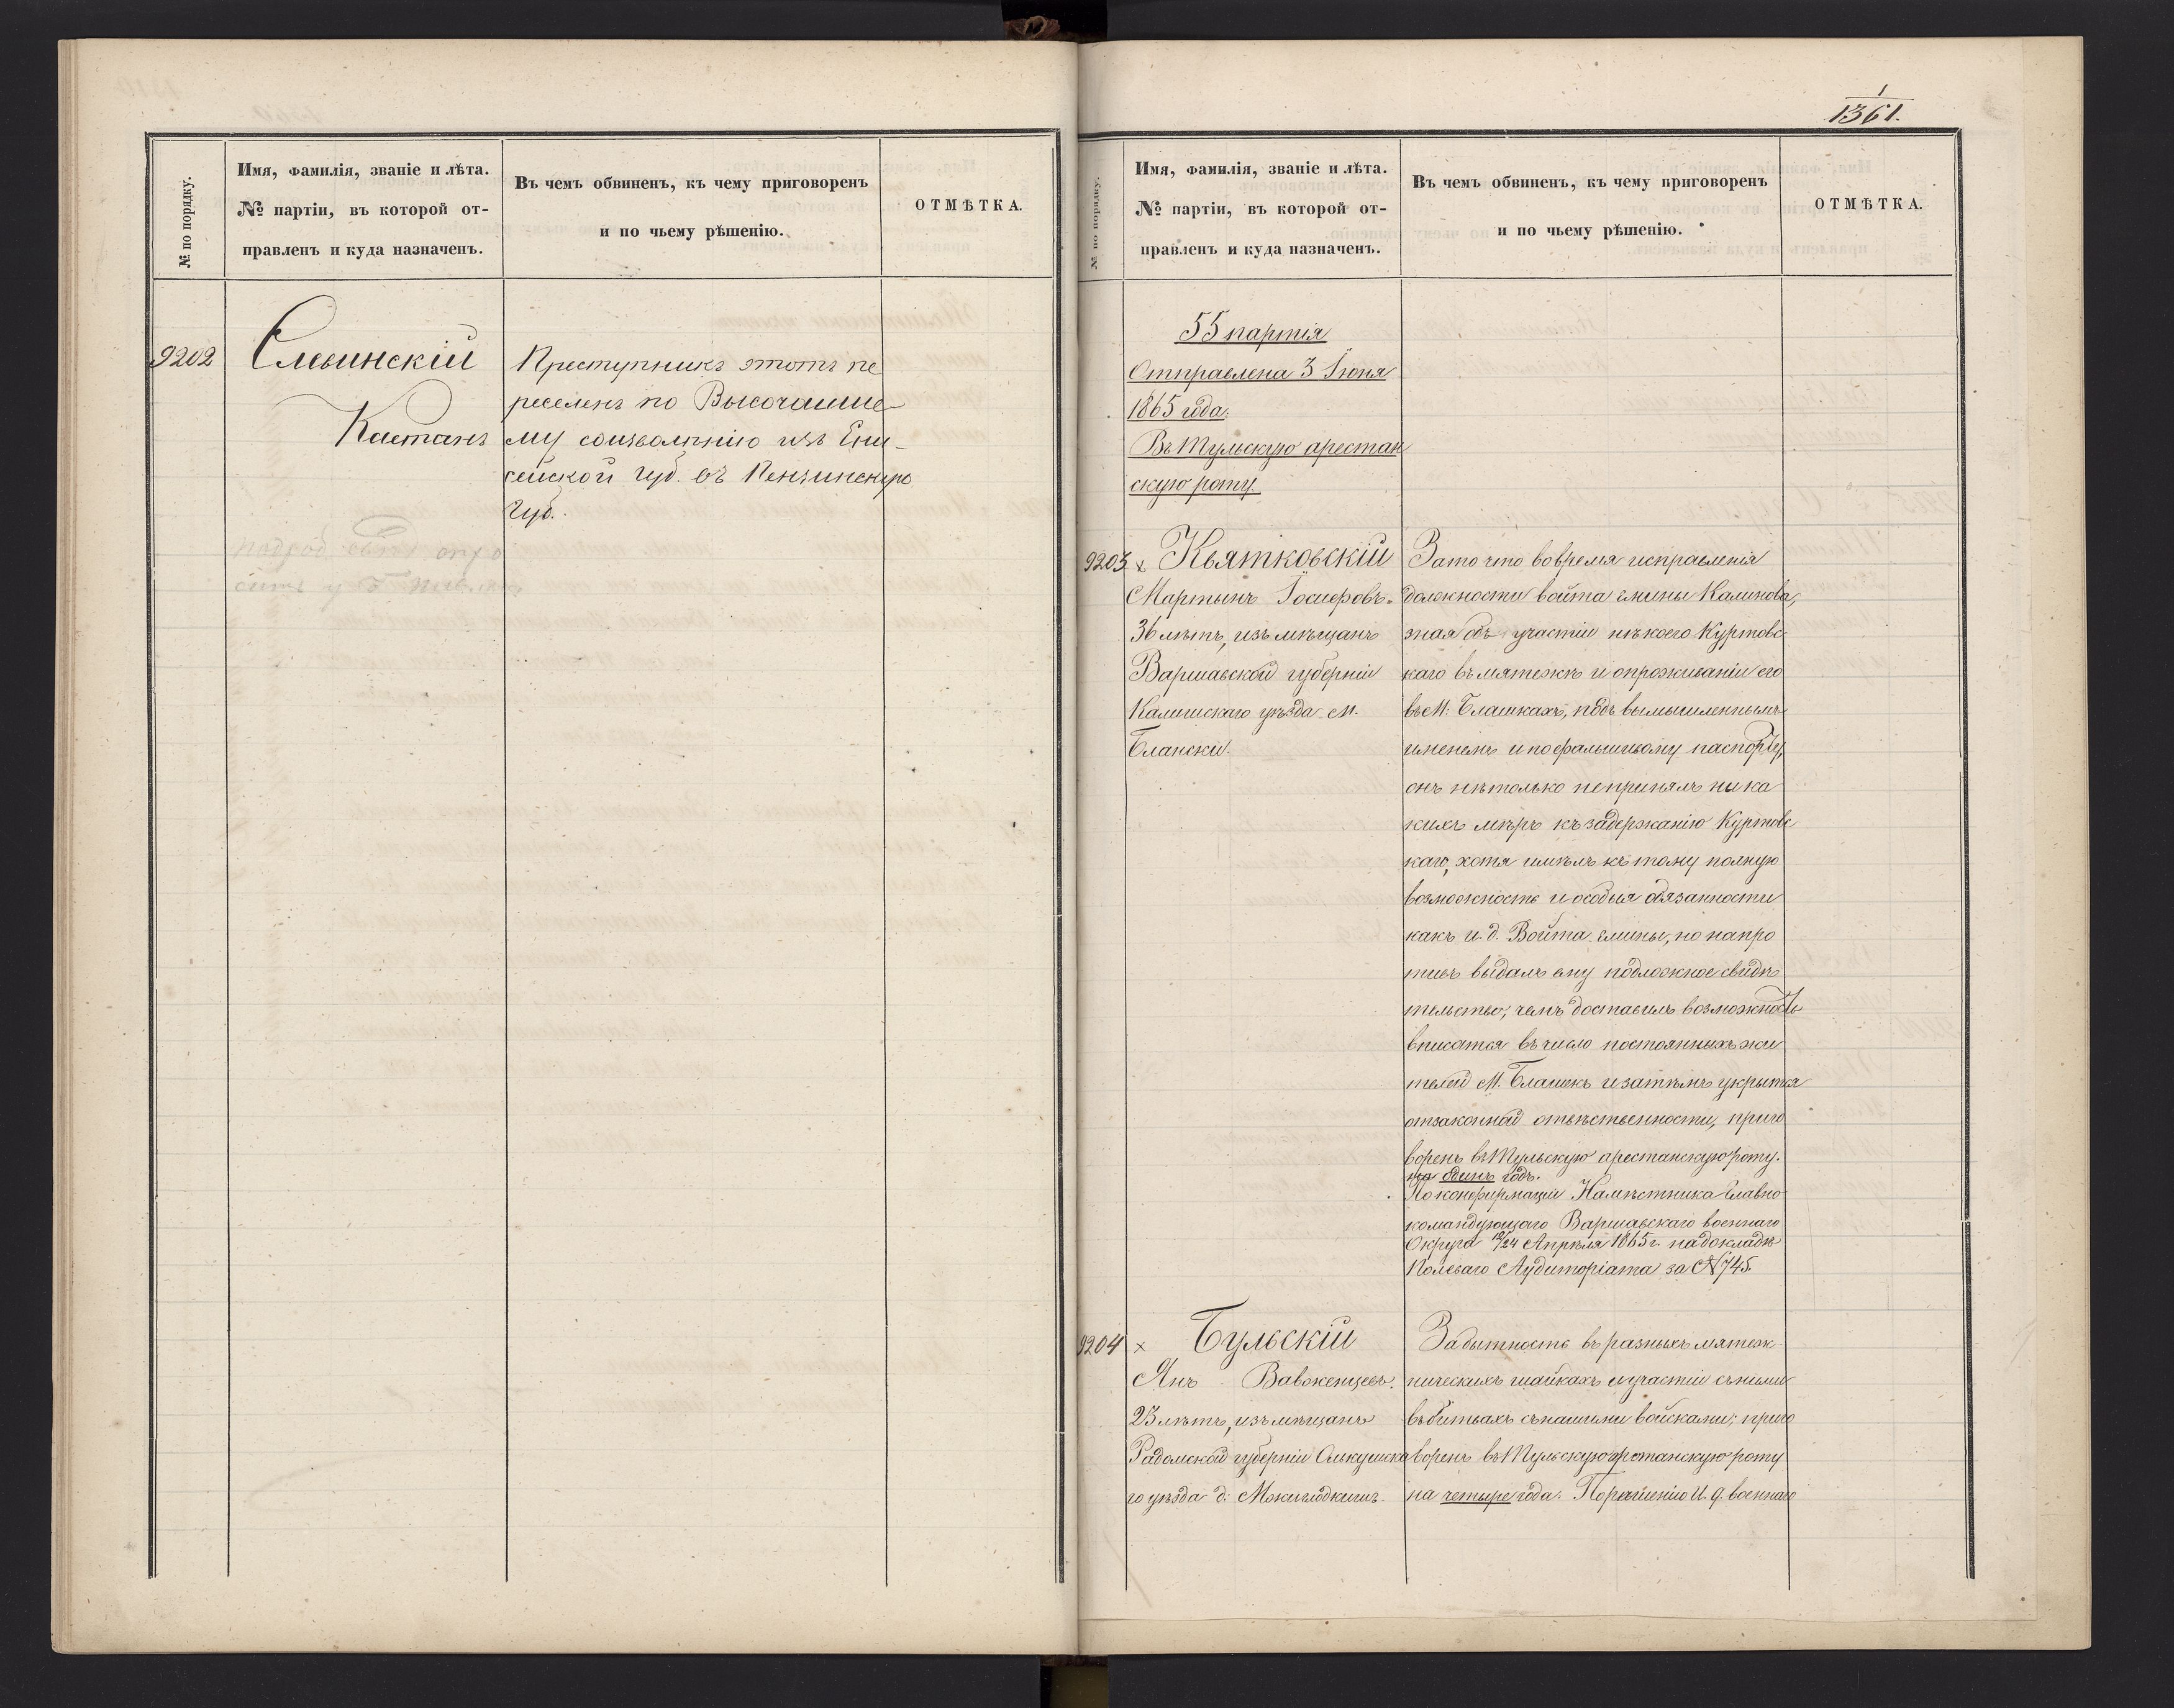 № по порядку.
Имя, фамилія, званіе и лѣта.
№ партіи, въ которой от-
правленъ и куда назначенъ.
Въ чемъ обвиненъ, къ чему приговоренъ
и по чьему рѣшенію.
ОТМѢТКА.
9202
Сливинскій
Каетанъ
Преступникъ этотъ пе
реселенъ по Высочайше-
му соизволенію изъ Ени-
сейской губ. въ Пензинскую
Губ.
1
1361.
№ по порядку.
Имя, фамилія, званіе и лѣта.
№ партіи, въ которой от-
правленъ и куда назначенъ.
Въ чемъ обвиненъ, къ чему приговоренъ
и по чьему рѣшенію.
ОТМѢТКА.
55 партія
Отправлена 3 Іюня
1865 года.
Въ Тульскую арестан
скую роту.
9203 x Квятковскій
Мартынъ Іосифовъ.
36 лѣтъ, изъ мѣщанъ
Варшавской губерніи
Калишскаго уѣзда М.
Блански.
За то что во время исправленія
должности войта гмины Калинова,
зная объ участіи нѣкоего Куртовс
каго въ мятежѣ и о проживаніи его
въ М. Блашкахъ, подъ вымышленнымъ
именемъ и по фальшивому паспорту,
онъ нетолько непринялъ ника
кихъ мѣръ къ задержанію Куртовс
каго, хотя имѣлъ къ тому полную
возможность и особыя обязанности
какъ и. д. Войта гмины, но напро
тивъ выдалъ ему подложное свидѣ
тельство, чемъ доставилъ возможность
вписатся въ число постоянныхъ жи
телей М. Блашекъ и затѣмъ укрытся
отзаконной отвѣственности, приго
воренъ въ Тульскую арестанскую роту.
на одинъ годъ.
По конфирмаціи Намѣстника Главно
командующаго Варшавскаго военнаго
Округа 12/24 Апрѣля 1865 г. на докладѣ
Полеваго Аудиторіата за № 745.
9204 x Бульскій
Янъ Вавженцевъ.
23 лѣтъ, изъ мѣщанъ
Радомской губерніи Олькушска
го уѣзда д.
За бытность въ разныхъ мятеж
ническихъ шайкахъ и участіи съ ними
въ битвахъ съ нашими войсками, приго
воренъ въ Тульскую арестанскую роту
на четыре года. По решенію И. д. военнаго